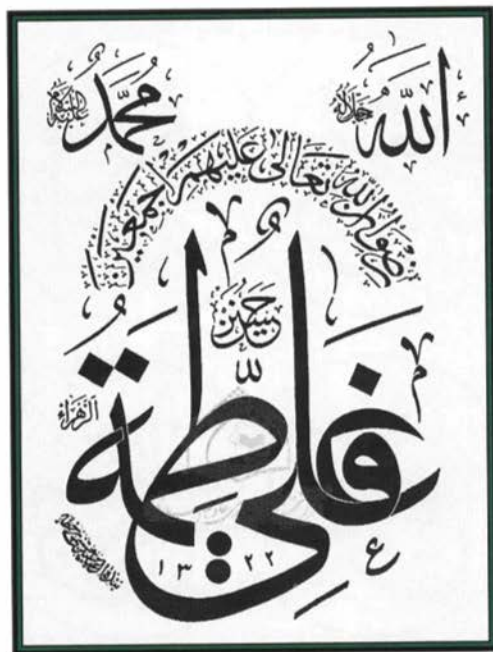 الله جل جلاله
محمد عليه السلام
رضوان الله تعالى عليهم اجمعين
حسين
فاطمة
علي
الزهراء
ع
١٣٢٢